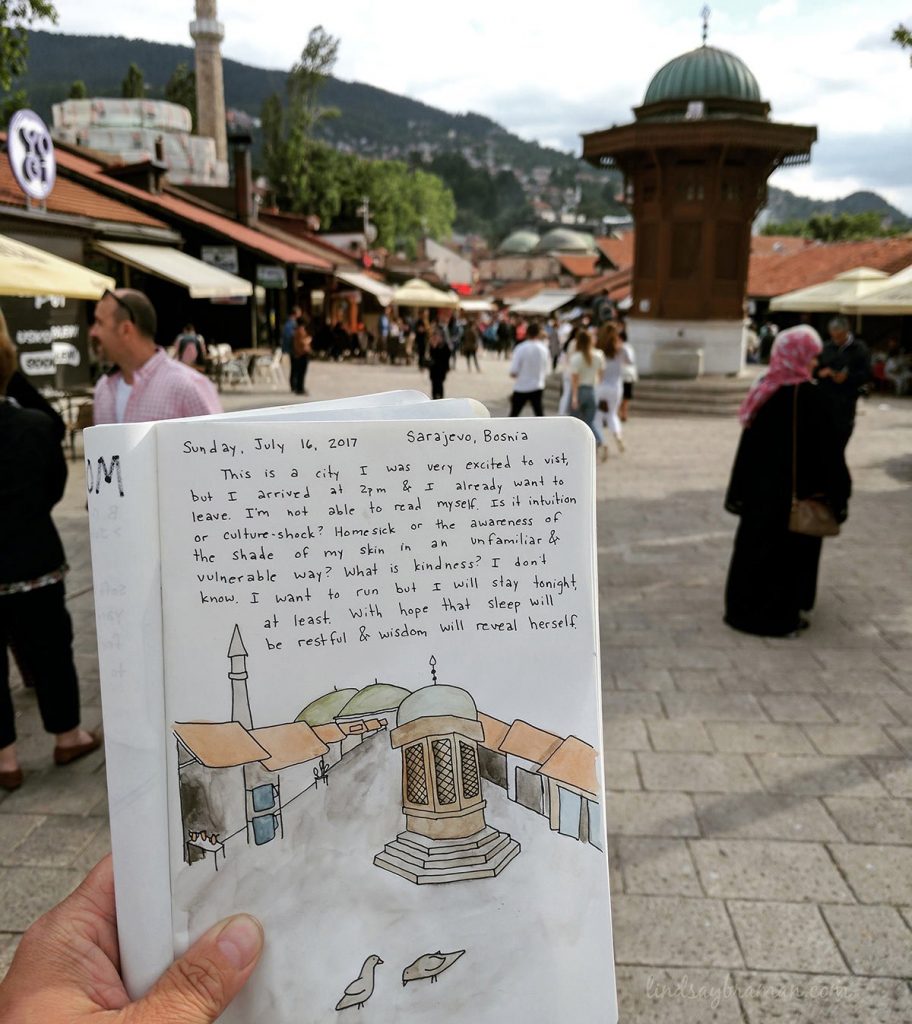 YOGI
Sunday, July 16, 2017 Sarajevo, Bosnia
This is a city I was very excited to vist,
but I arrived at 2pm & I already want to
leave. I'm not able to read myself. Is it intuition
or culture-shock? Homesick or the awareness of
the shade of my skin in an unfamiliar &
vulnerable way? What is kindness? I don't
know. I want to run but I will stay tonight,
at least. With hope that sleep will
be restful & wisdom will reveal herself.
OM
lindsaybraman.com